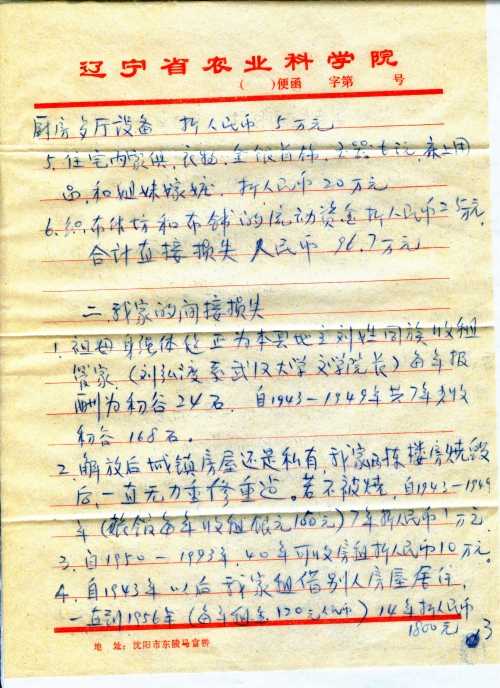 辽宁省农业科学院
（ ）便函 字第 号
厨房客厅设备 折人民币 5万元
5. 住宅内家俱、衣物、金银首饰、玉器七元、床上用
品、和姐妹嫁妆、折人民币20万元
6. 织布作坊和布铺的流动资金折人民币25万元,
合计直接损失 人民币 96.7万元
二、我家的间接损失
1. 祖母身强体健正为本县地主刘姓同族收租
管家（刘 武汉大学文学院长）每年报
酬为初谷24石. 自1943-1949年共7年少收
初谷168石。
2. 解放后城镇房屋还是私有, 我家 栋楼房烧毁
后, 一直无力重修重造。若不被烧, 自1943-1949
年（旅馆每年收租银元160元）7年折人民币1万元.
3. 自1950-1993年, 40年可收房租折人民币10万元。
4. 自1943年以后我家租借别人房屋居住,
一直到1956年（每年租金120元人币）14年折人民币
1800元
3
地 址：沈阳市东陵马官桥